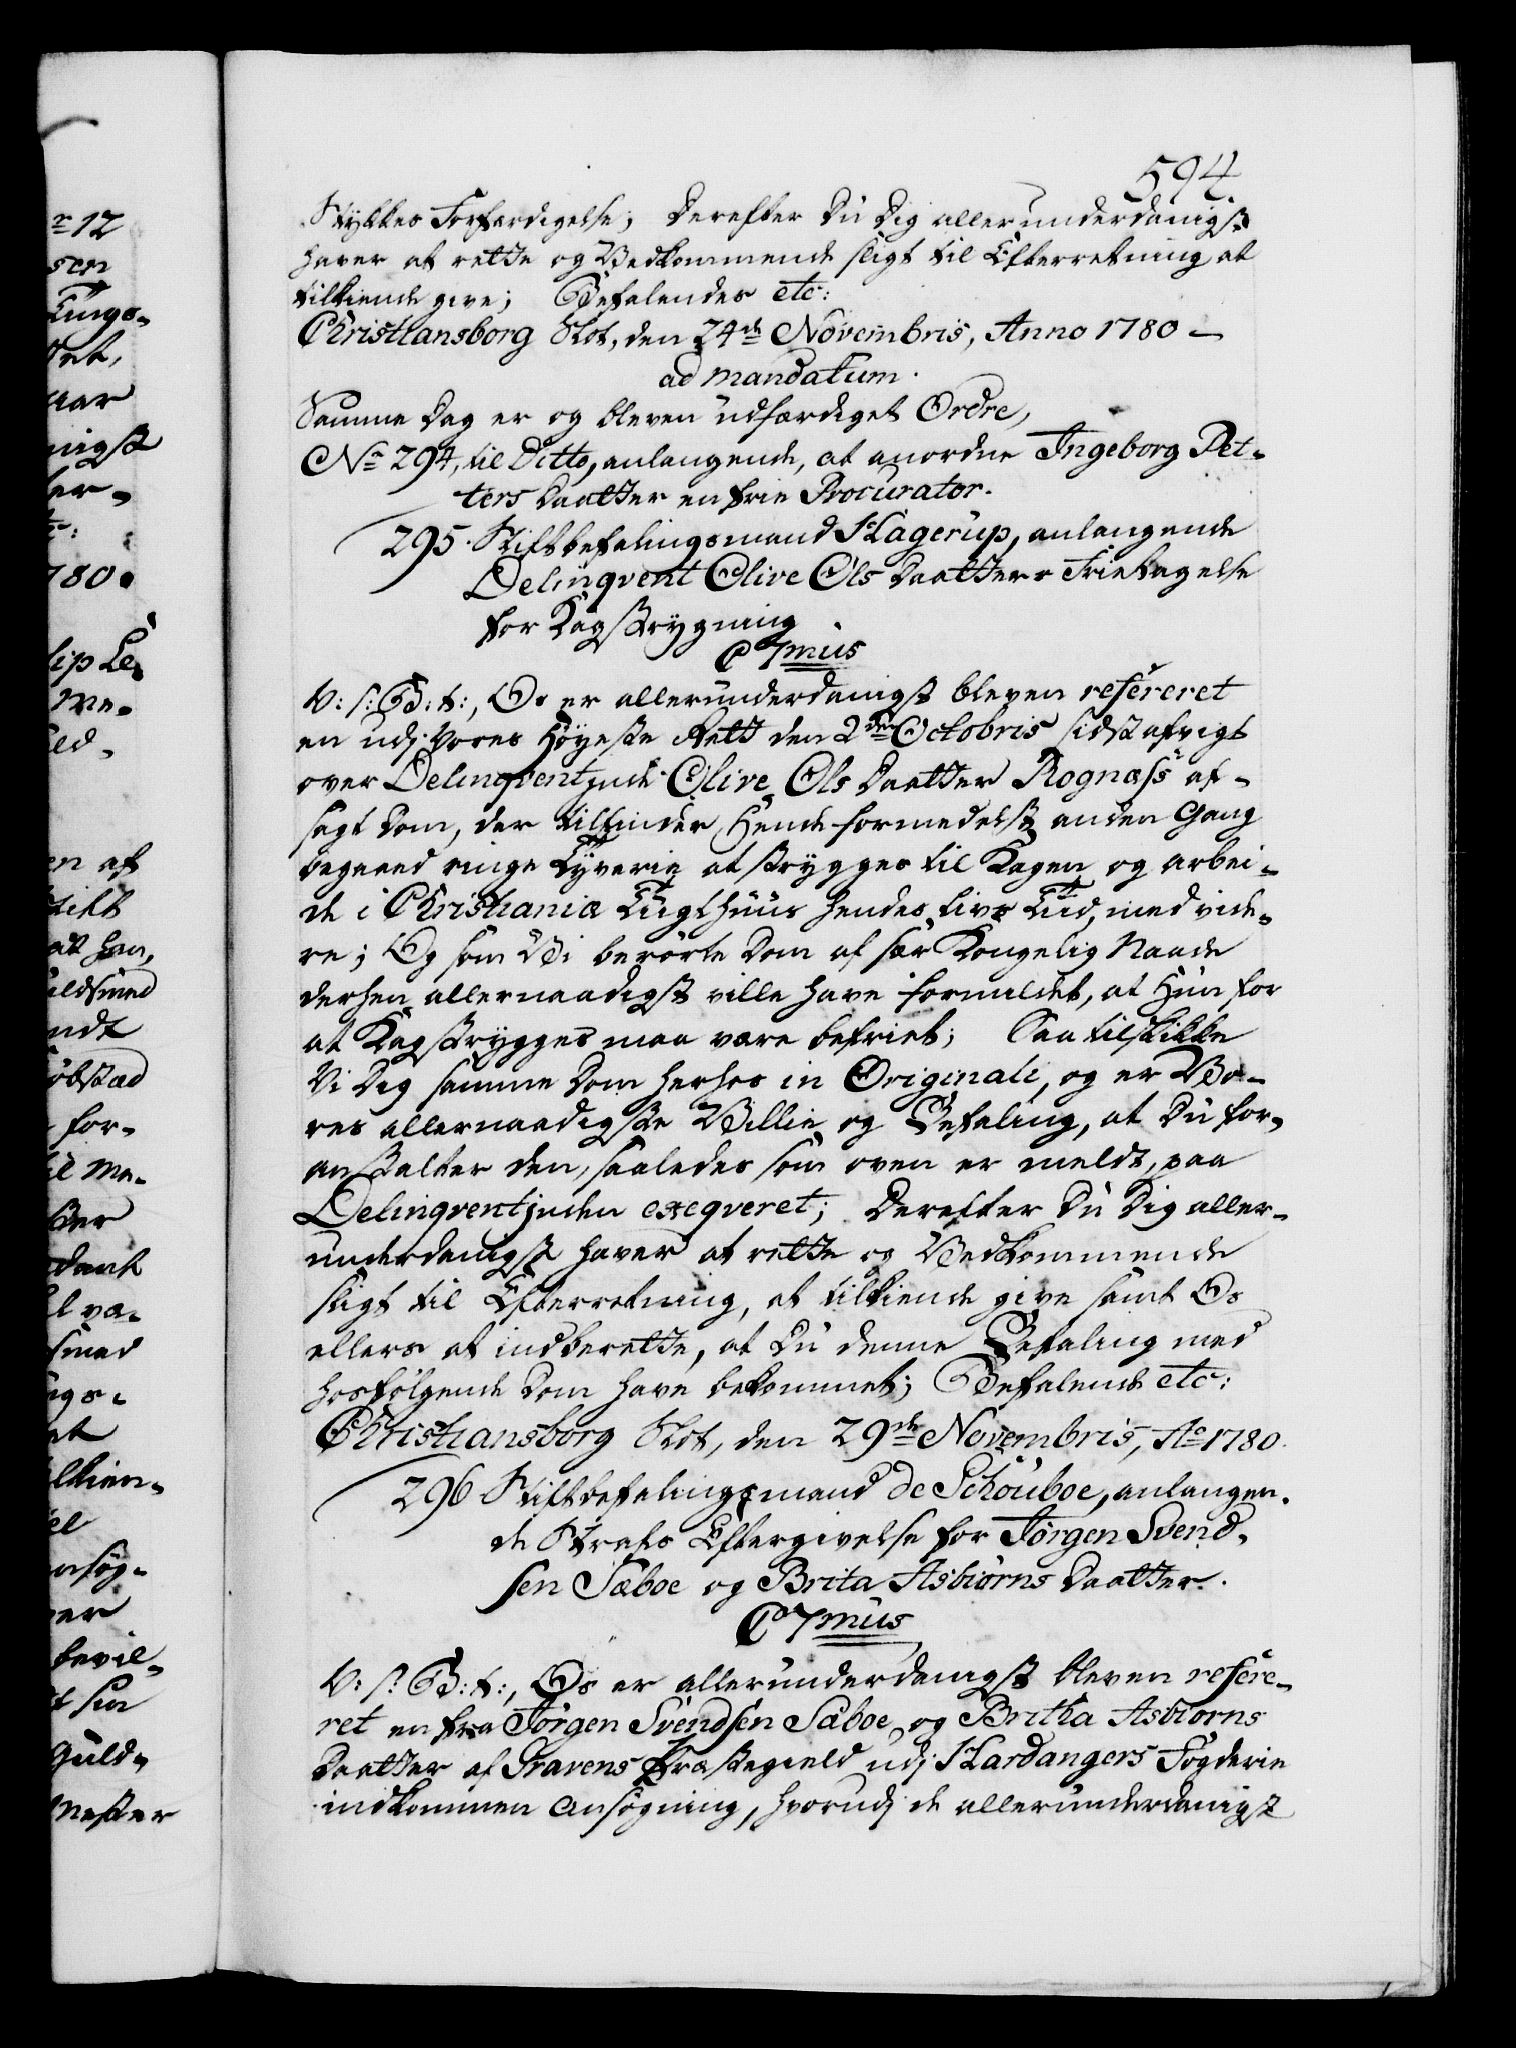 594
Stykkes Forfærdigelse; Derefter Du Dig allerunderdanigst
haver at rette og Vedkommende sligt til Efterretning at
tilkiende give; Befalendes etc:
Christiansborg Slot, den 24de Novembris, Anno 1780 —
ad mandatum.
Samme Dag er og bleven udfærdiget Ordre,
No 294, til Ditto, anlangende, at anordne Ingeborg Pet-
ters Daatter en frie Procurator.
295. Stiftbefalingsmand Hagerup, anlangende
Delinqvent Olive Ols Daatters Frietagelse
for Kagstrygning
C 7mus
V: s: G: t:, Os er allerunderdanigst bleven refereret
en udj Vores Höyeste Rett den 2den Octobris sidst afvigt
over Delinqventinde Olive Ols Daatter Rognæss af-
sagt Dom, der tilfinder Hende formedelst anden Gang
begaaed ringe Tyverie at stryges til Kagen og arbei-
de i Christiania Tugthuus hendes Livs Tiid, med vide-
re; Og som Vi berörte Dom af sær Kongelig Naade
derhen allernaadigst ville have formildet, at Hun for
at Kagstryges maa være befriet; Saa tilskikke
Vi Dig samme Dom herhos in Originali, og er Vo-
res allernaadigste Villie og Befaling, at Du for-
anstalter den, saaledes som oven er meldt, paa
Delinqventinden exeqveret; Derefter Du Dig aller-
underdanigst haver at rette og Vedkommende
sligt til Efterretning, at tilkiende give samt Os
ellers at indberette, at Du denne Befaling med
hosfölgende Dom have bekommet; Befalende etc:
Christiansborg Slot, den 29de Novembris, Ao 1780.
296 Stiftbefalingsmand de Schouboe, anlangen-
de Strafs Eftergivelse for Jörgen Svend-
sen Sæboe og Brita Asbiörns Daatter.
C 7mus
V: s: G: t:, Os er allerunderdanigst bleven refere-
ret en fra Jörgen Svendsen Sæboe og Britha Asbiorns
Daatter af Gravens Præstegield udj Hardangers Fogderie
indkommen Ansögning, hvorudj de allerunderdanigst